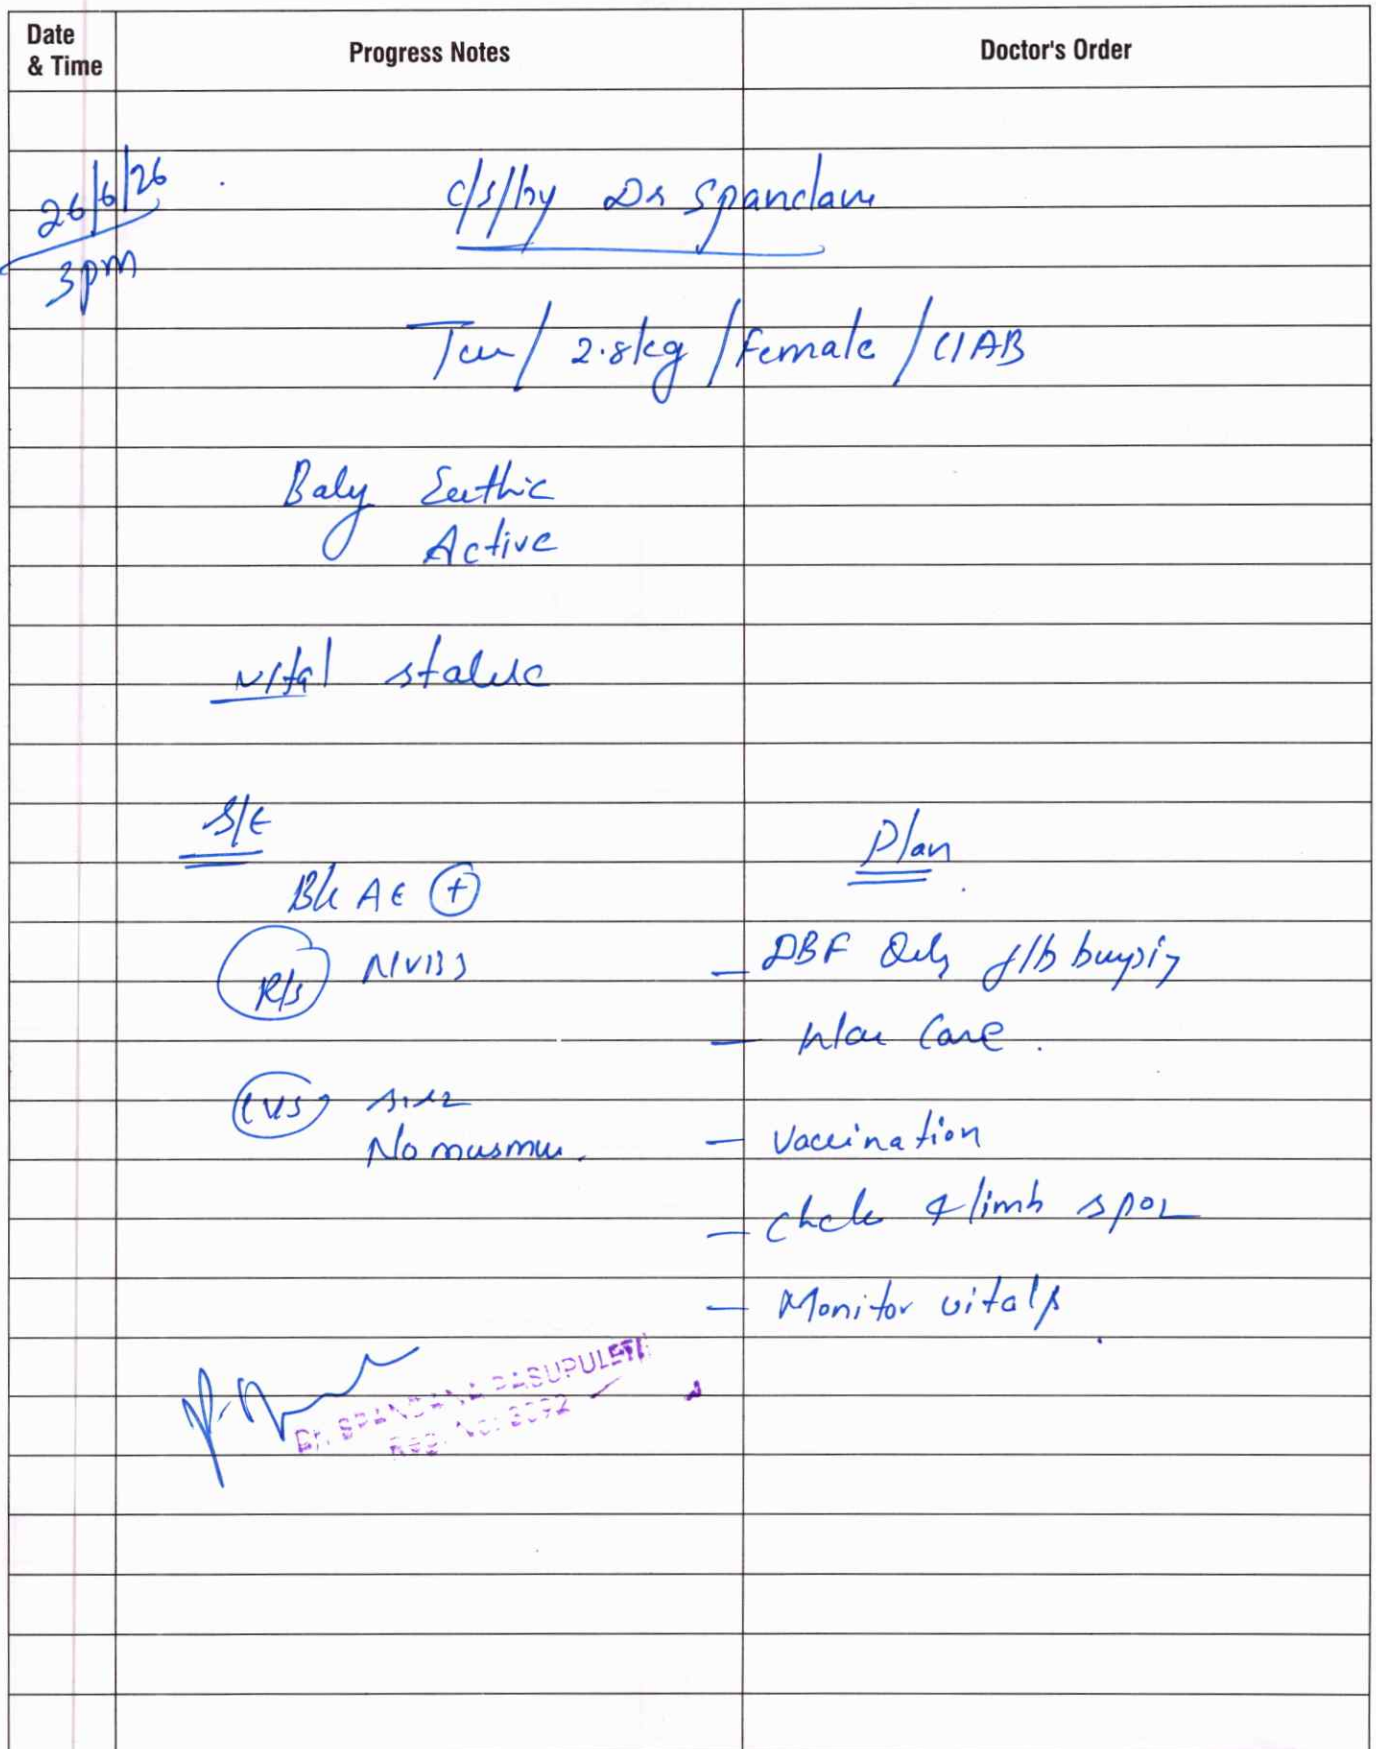 Date & Time
Progress Notes
Doctor's Order
26/6/26
3pm
c/s/by Dr Spandana
Term / 2.8kg / Female / CIAB
Baby Euthic
Active
vital stable
S/E
B/L AE +
R/S NVBS
CVS S1S2
No murmur.
Plan
- DBF Q2h f/b burping
- Warm Care.
- Vaccination
- Check 4 limb SPO2
- Monitor vitals
Dr. SPANDANA PASUPULETI
Reg. No: